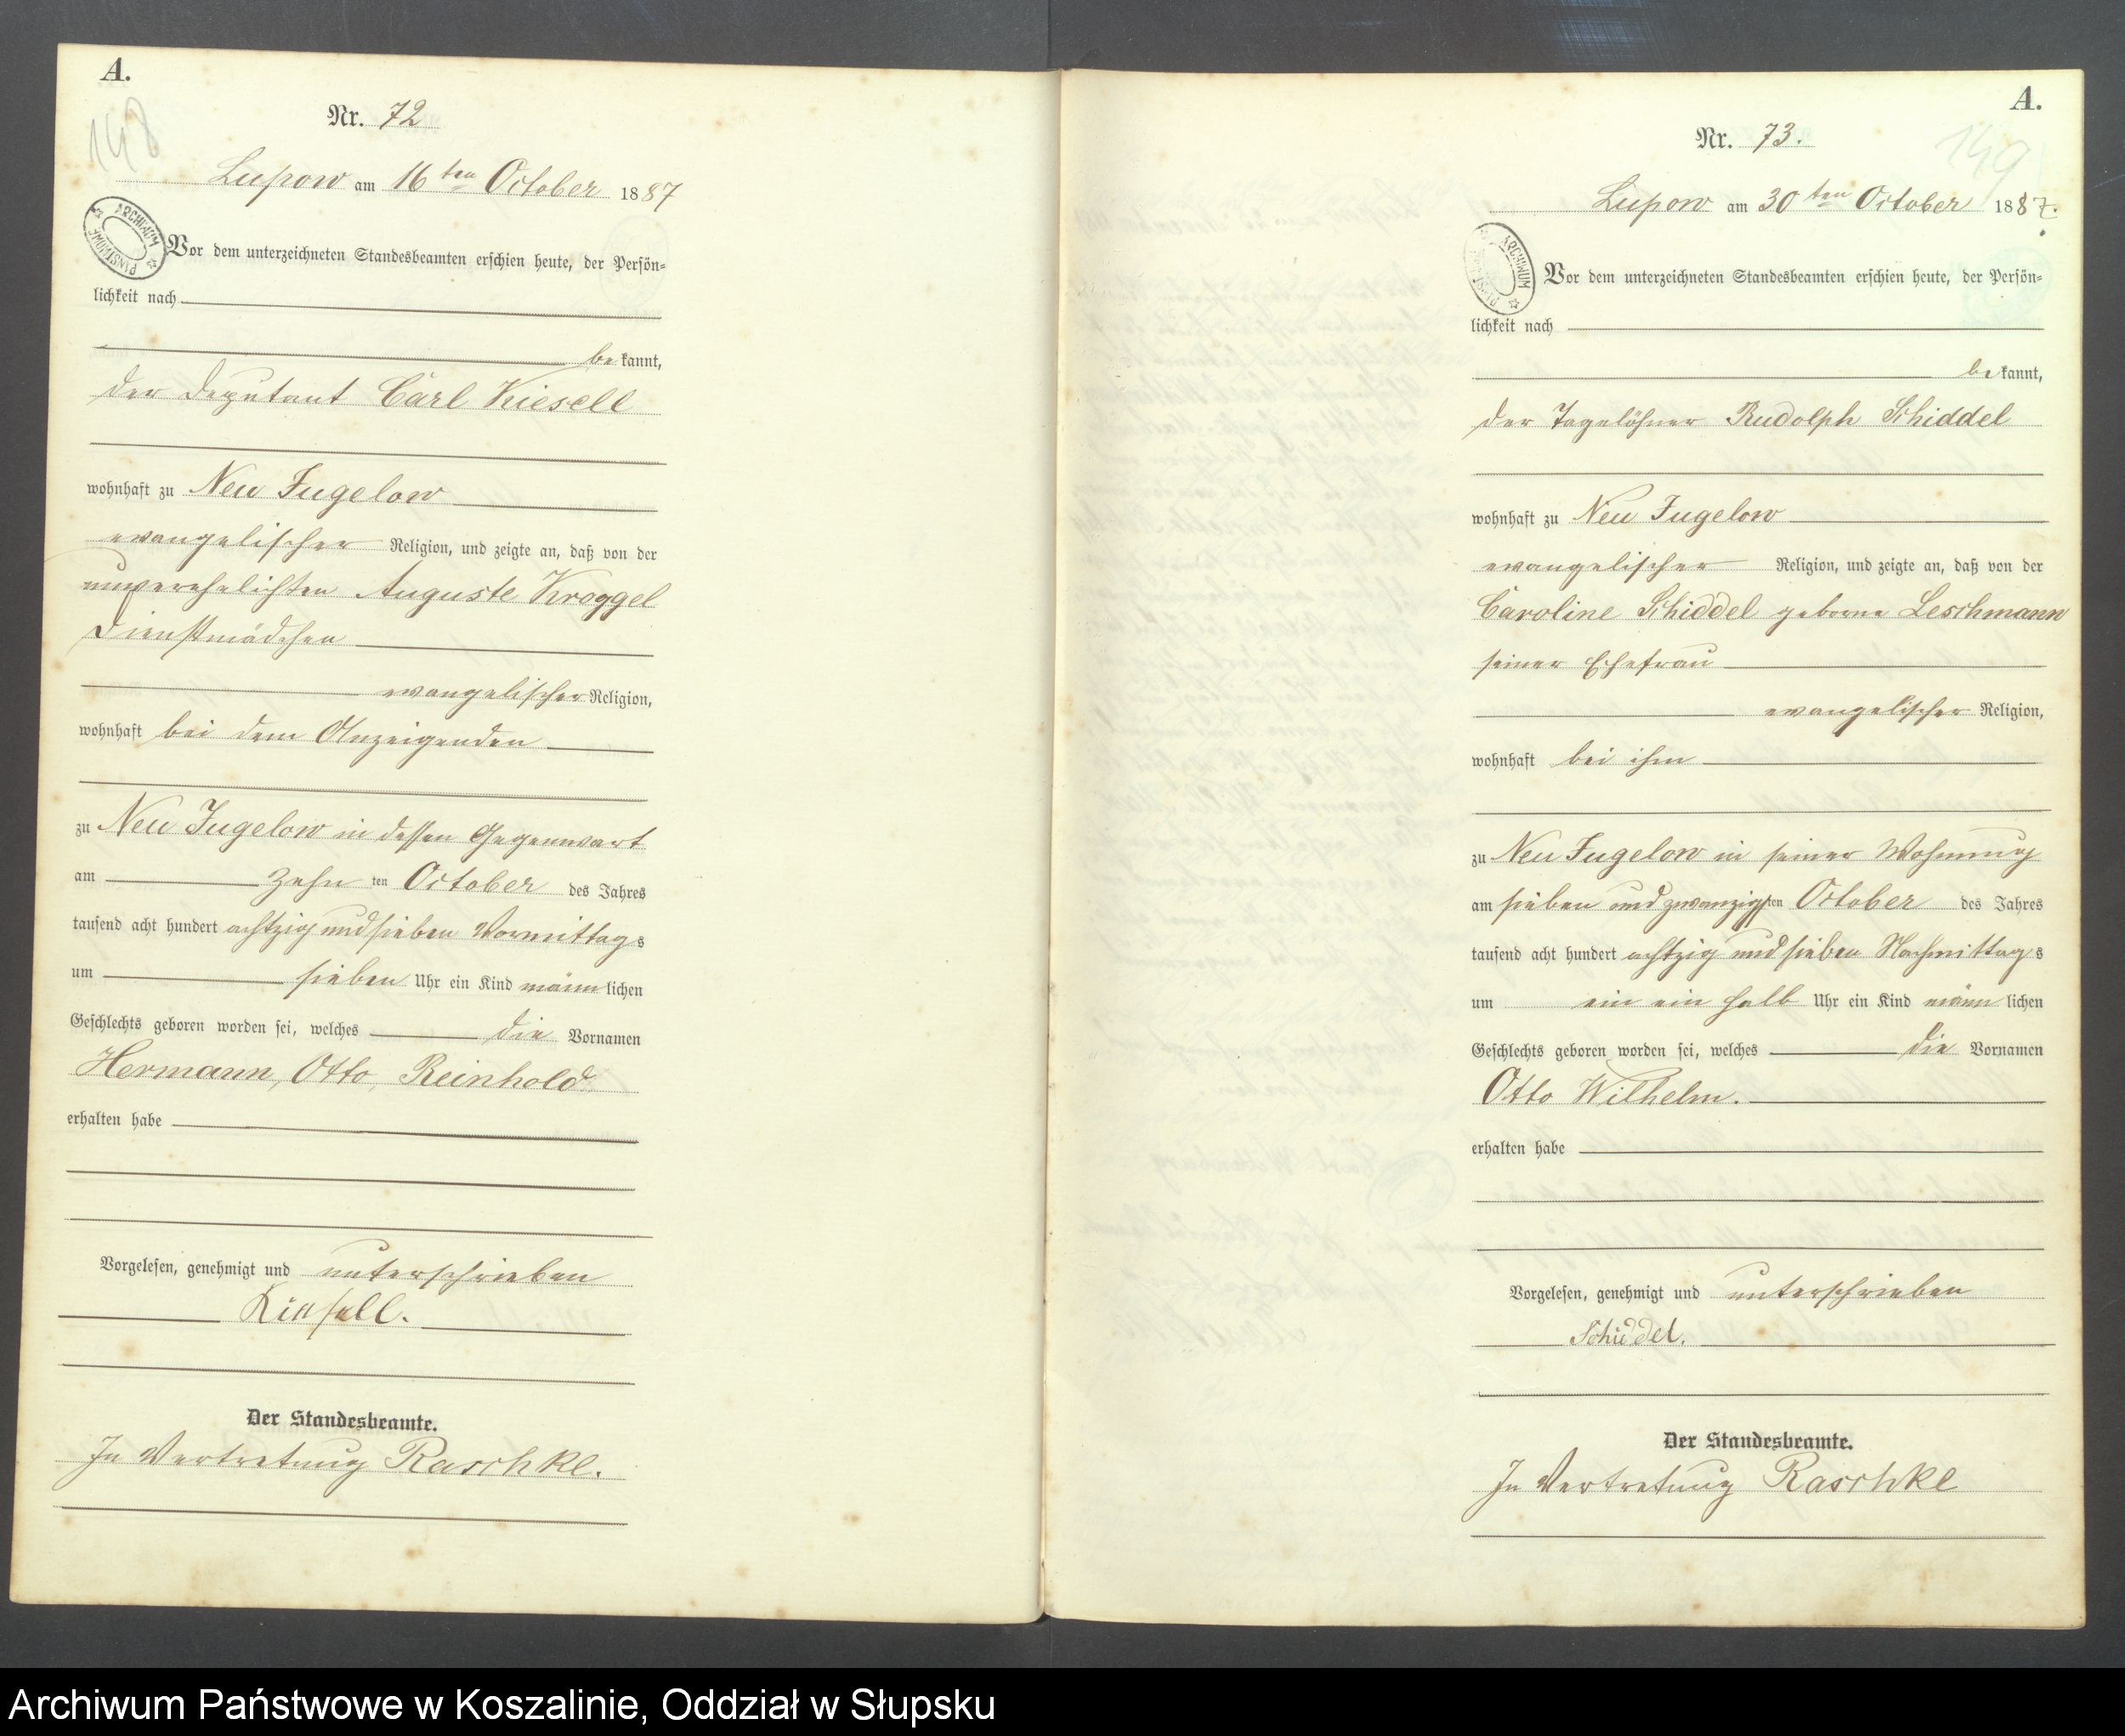 A.
148
Nr. 72
Lupow am 16ten October 1887
ARCHIWUM PAŃSTWOWE
Vor dem unterzeichneten Standesbeamten erschien heute, der Persön-
lichkeit nach
bekannt,
der Deputant Carl Kiesell
wohnhaft zu Neu Jugelow
evangelischer Religion, und zeigte an, daß von der
unverehelichten Auguste Kroggel
Dienstmädchen
evangelischer Religion,
wohnhaft bei dem Anzeigenden
zu Neu Jugelow in dessen Gegenwart
am zehn ten October des Jahres
tausend acht hundert achtzig und sieben Vormittags
um sieben Uhr ein Kind männlichen
Geschlechts geboren worden sei, welches die Vornamen
Hermann, Otto, Reinhold
erhalten habe
Vorgelesen, genehmigt und unterschrieben
Kiesell.
Der Standesbeamte.
In Vertretung Raschke.
A.
149
Nr. 73.
Lupow am 30ten October 1887.
ARCHIWUM PAŃSTWOWE
Vor dem unterzeichneten Standesbeamten erschien heute, der Persön-
lichkeit nach
bekannt,
der Tagelöhner Rudolph Schiddel
wohnhaft zu Neu Jugelow
evangelischer Religion, und zeigte an, daß von der
Caroline Schiddel geborne Leschmann
seiner Ehefrau
evangelischer Religion,
wohnhaft bei ihm
zu Neu Jugelow in seiner Wohnung
am sieben und zwanzigsten October des Jahres
tausend acht hundert achtzig und sieben Nachmittags
um ein ein halb Uhr ein Kind männlichen
Geschlechts geboren worden sei, welches die Vornamen
Otto Wilhelm.
erhalten habe
Vorgelesen, genehmigt und unterschrieben
Schiddel.
Der Standesbeamte.
In Vertretung Raschke
Archiwum Państwowe w Koszalinie, Oddział w Słupsku